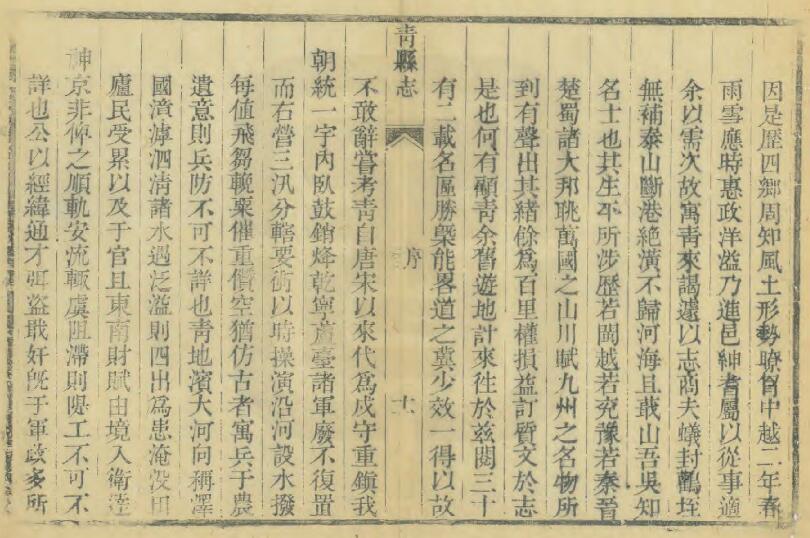 因是歷四鄉周知風土形勢瞭胷中越二年春
雨雪應時惠政洋溢乃進邑紳耆屬以從事適
余以需次故寓青來謁遽以志商夫蟻封鸛垤
無補泰山斷港絕潢不歸河海且蕺山吾吳知
名士也其生平所涉歷若閩越若兗豫若秦晉
楚蜀諸大邦眺萬國之山川賦九州之名物所
到有聲出其緒餘為百里權損益訂質文於志
是也何有顧青余舊遊地計來往於兹閱三十
有二載名區勝槩能畧道之冀少效一得以故
青縣志
序
不敢辭嘗考青自唐宋以來代為戍守重鎮我
朝統一宇內臥鼓銷烽乾寧蘆臺諸軍廢不復置
而右營三汛分轄要衝以時操演沿河設水撥
每值飛芻輓粟催重儹空猶仿古者寓兵于農
遺意則兵防不可不詳也青地濱大河向稱澤
國漳滹泗清諸水遇泛溢則四出為患淹沒田
廬民受累以及于官且東南財賦由境入衛達
神京非俾之順軌安流輒虞阻滯則隄工不可不
詳也公以經緯通才弭盜戢奸旣于軍政多所